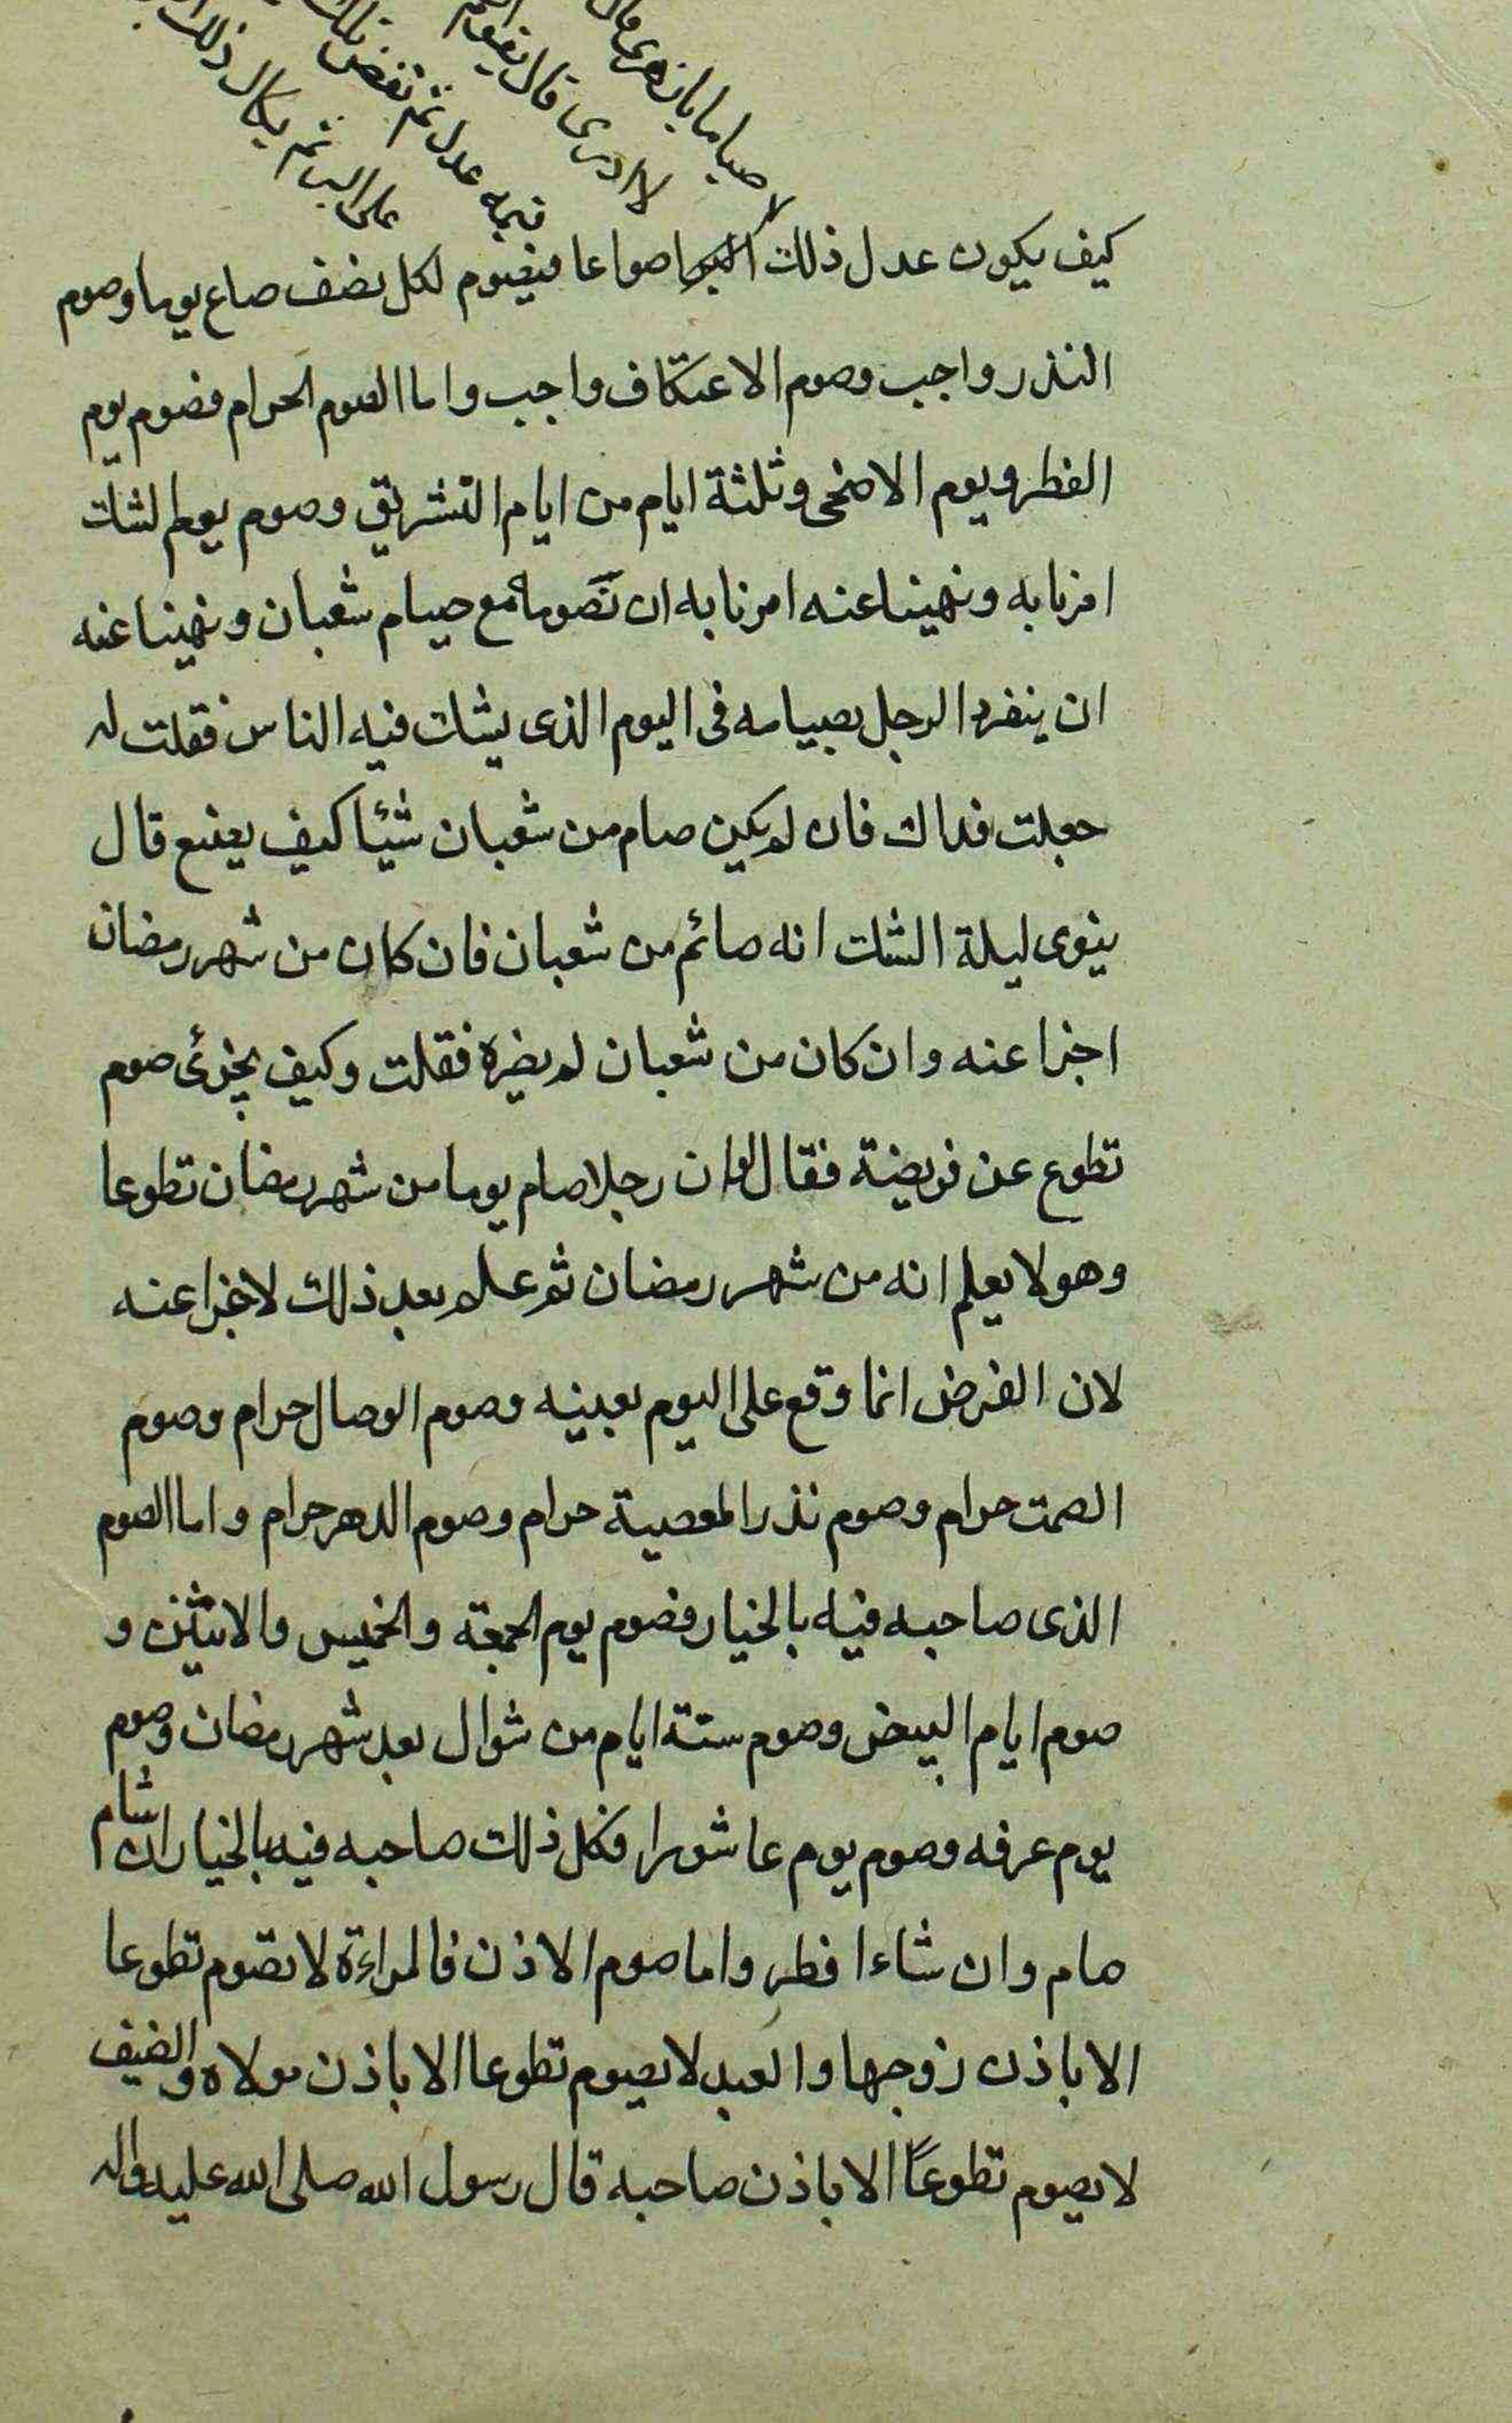 لا صياما يا زهري قال
لا ادرى قال يقوم
قيمة عدل ثم تفض تلك
على البر ثم يكال ذلك
كيف يكون عدل ذلك البر اصواعا فيصوم لكل نصف صاع يوما وصوم
النذر واجب وصوم الاعتكاف واجب واما الصوم الحرام فصوم يوم
الفطر ويوم الاضحى وثلثة ايام من ايام التشريق وصوم يوم الشك
امرنا به ونهينا عنه امرنا به ان نصومه مع صيام شعبان ونهينا عنه
ان ينفرد الرجل بصيامه فى اليوم الذى يشك فيه الناس فقلت له
جعلت فداك فان لم يكن صام من شعبان شيئا كيف يصنع قال
ينوى ليلة الشك انه صائم من شعبان فان كان من شهر رمضان
اجزا عنه وان كان من شعبان لم يضره فقلت وكيف يجزئ صوم
تطوع عن فريضة فقال لو ان رجلا صام يوما من شهر رمضان تطوعا
وهو لا يعلم انه من شهر رمضان ثم علم بعد ذلك لاجزا عنه
لان الفرض انما وقع على اليوم بعينه وصوم الوصال حرام وصوم
الصمت حرام وصوم نذر المعصية حرام وصوم الدهر حرام واما الصوم
الذى صاحبه فيه بالخيار فصوم يوم الجمعة والخميس والاثنين و
صوم ايام البيض وصوم ستة ايام من شوال بعد شهر رمضان وصوم
يوم عرفه وصوم يوم عاشورا فكل ذلك صاحبه فيه بالخيار ان شاء
صام وان شاء افطر واما صوم الاذن فالمراءة لا تصوم تطوعا
الا باذن زوجها والعبد لا يصوم تطوعا الا باذن مولاه والضيف
لا يصوم تطوعًا الا باذن صاحبه قال رسول الله صلى الله عليه واله